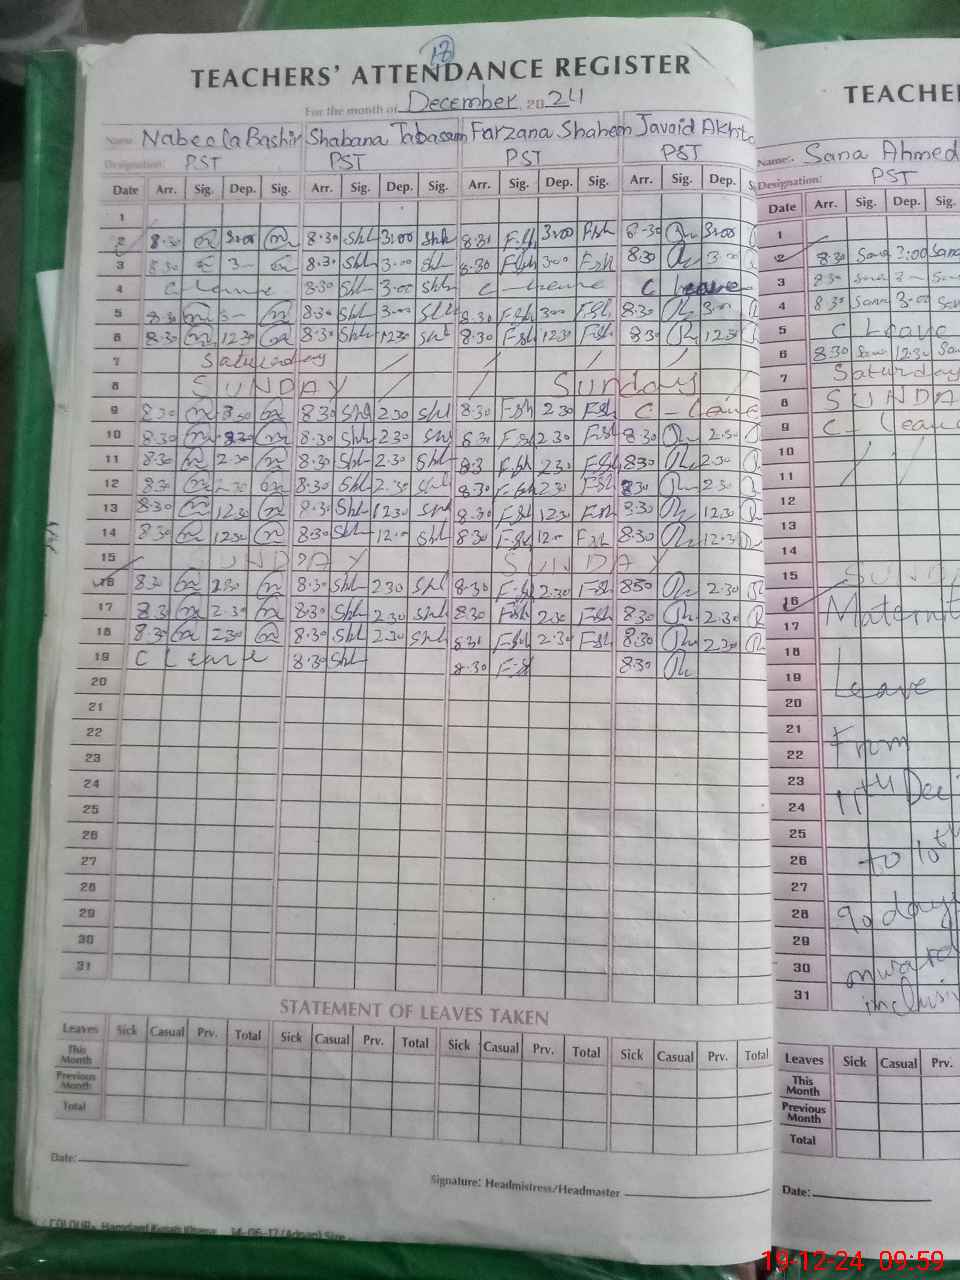 12
TEACHERS' ATTENDANCE REGISTER
For the month of December 2024
Name Nabeela Bashir Shabana Tabasam Farzana Shaheen Javaid Akhta
Designation: PST PST PST PST
Date Arr. Sig. Dep. Sig. Arr. Sig. Dep. Sig. Arr. Sig. Dep. Sig. Arr. Sig. Dep. S
1
2 8.30 3:00 8.30 Shb 3:00 Shb 8.30 F.sh 3:00 F.sh 8.30 3:00
3 8.30 3- 8.30 Shb 3.00 Shb 8.30 F.sh 3.00 F.sh 8.30 3.00
4 C-leave 8.30 Shb 3.00 Shb C-leave C leave
5 8.30 3- 8.30 Shb 3.00 Shb 8.30 F.sh 3.00 F.sh 8.30 3.00
6 8.30 12.30 8.30 Shb 12.30 Shb 8.30 F.sh 12.30 F.sh 8.30 12.30
7 Saturday
8 SUNDAY Sunday
9 8.30 8.30 Shb 2.30 Shb 8.30 F.sh 2.30 F.sh C-leave
10 8.30 8.30 Shb 2.30 Shb 8.30 F.sh 2.30 F.sh 8.30 2.30
11 8.30 2.30 8.30 Shb 2.30 Shb 8.30 F.sh 2.30 F.sh 8.30 2.30
12 8.30 2.30 8.30 Shb 2.30 Shb 8.30 F.sh 2.30 F.sh 8.30 2.30
13 8.30 12.30 8.30 Shb 12.30 Shb 8.30 F.sh 12.30 F.sh 8.30 12.30
14 8.30 12.30 8.30 Shb 12.00 Shb 8.30 F.sh 12.00 F.sh 8.30 12.30
15 SUNDAY SUNDAY
16 8.30 2.30 8.30 Shb 2.30 Shb 8.30 F.sh 2.30 F.sh 8.30 2.30
17 8.30 2.30 8.30 Shb 2.30 Shb 8.30 F.sh 2.30 F.sh 8.30 2.30
18 8.30 2.30 8.30 Shb 2.30 Shb 8.30 F.sh 2.30 F.sh 8.30 2.30
19 C Leave 8.30 Shb 8.30 F.sh 8.30
20
21
22
23
24
25
26
27
28
29
30
31
STATEMENT OF LEAVES TAKEN
Leaves Sick Casual Prv. Total Sick Casual Prv. Total Sick Casual Prv. Total Sick Casual Prv. Total
This Month
Previous Month
Total
Date:
Signature: Headmistress/Headmaster
TEACHE
Name:. Sana Ahmed
Designation: PST
Date Arr. Sig. Dep. Sig.
1
2 8.30 Sana 3:00 Sana
3 8.30 Sana 3- Sana
4 8.30 Sana 3.00 San
5 C Leave
6 8.30 San 12.30 Sa
7 Saturday
8 SUNDA
9 C-Leave
10
11
12
13
14
15 SUND
16
17 Maternit
18
19 Leave
20
21
22 From
23
24 11th Dec
25
26 to 10th
27
28 90 days
29
30
31 inclusiv
Leaves Sick Casual Prv.
This Month
Previous Month
Total
Date:
19-12-24 09:59